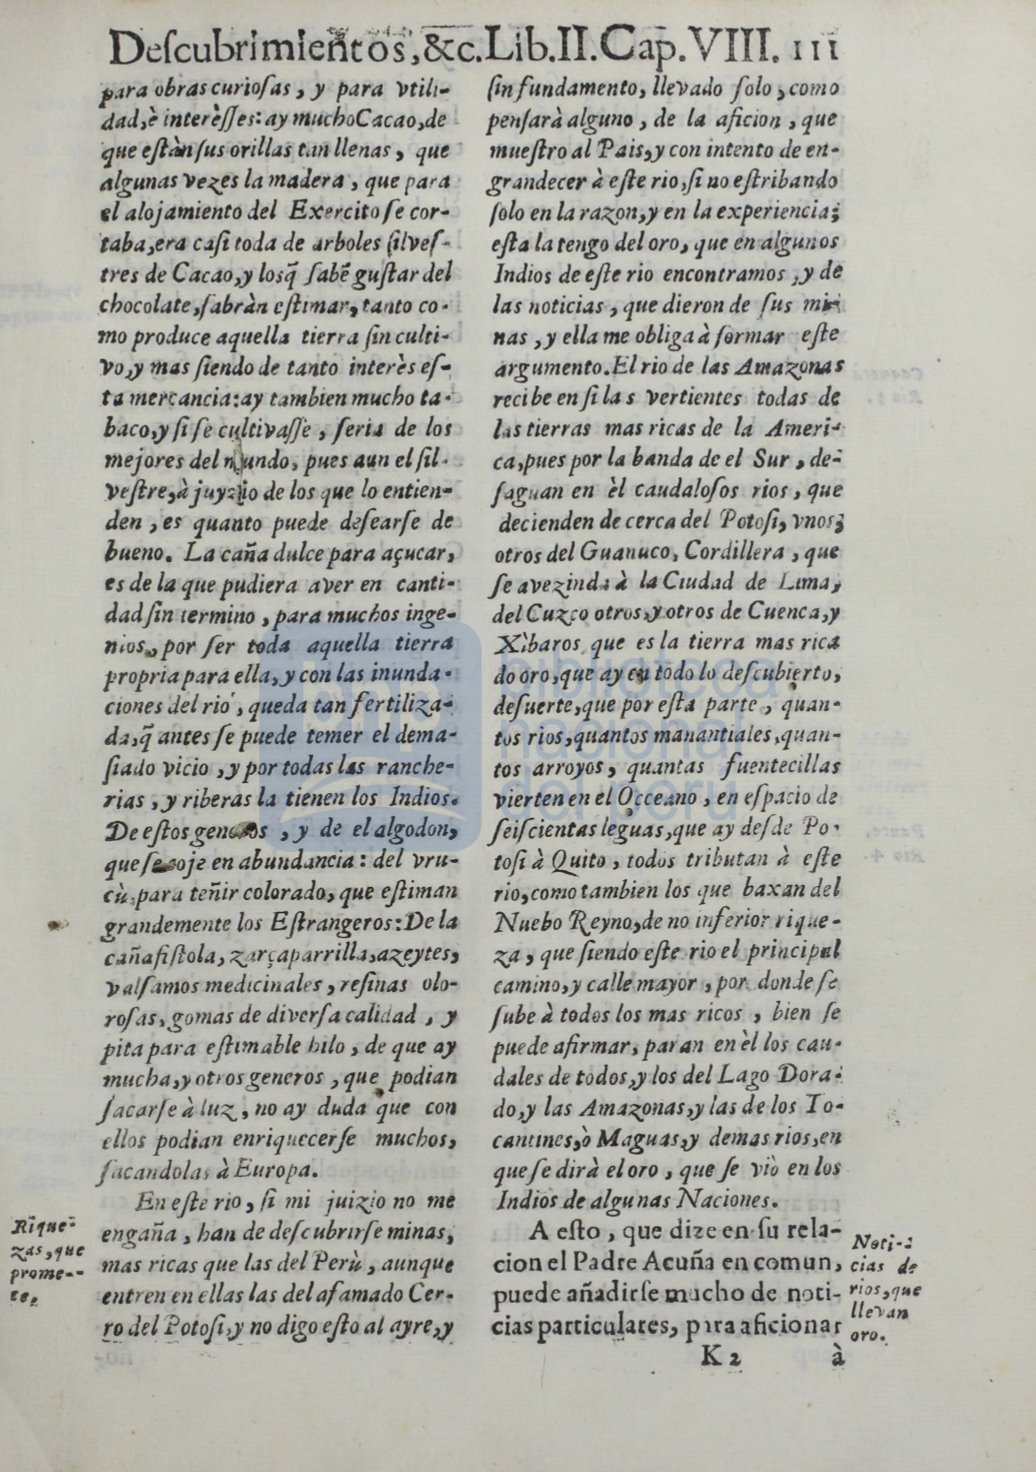 Deſcubrimientos, &c. Lib. II. Cap. VIII. 111
para obras curioſas, y para vtili-
dad, è interèſſes: ay mucho Cacao, de
que eſtàn ſus orillas tan llenas, que
algunas vezes la madera, que para
el alojamiento del Exercito ſe cor-
taba, era caſi toda de arboles ſilveſ-
tres de Cacao, y los q̃ ſabẽ guſtar del
chocolate, ſabràn eſtimar, tanto co-
mo produce aquella tierra ſin culti-
vo, y mas ſiendo de tanto interès eſ-
ta mercancia: ay tambien mucho ta-
baco, y ſi ſe cultivaſſe, ſeria de los
mejores del mundo, pues aun el ſil-
veſtre, à juyzio de los que lo entien-
den, es quanto puede deſearſe de
bueno. La caña dulce para açucar,
es de la que pudiera aver en canti-
dad ſin termino, para muchos inge-
nios, por ſer toda aquella tierra
propria para ella, y con las inunda-
ciones del rio, queda tan fertiliza-
da, q̃ antes ſe puede temer el dema-
ſiado vicio, y por todas las ranche-
rias, y riberas la tienen los Indios.
De eſtos generos, y de el algodon,
que ſe coje en abundancia: del vru-
cù, para teñir colorado, que eſtiman
grandemente los Eſtrangeros: De la
cañafiſtola, zarçaparrilla, azeytes,
valſamos medicinales, reſinas olo-
roſas, gomas de diverſa calidad, y
pita para eſtimable hilo, de que ay
mucha, y otros generos, que podian
ſacarſe à luz, no ay duda que con
ellos podian enriquecerſe muchos,
ſacandolas à Europa.
En eſte rio, ſi mi juizio no me
engaña, han de deſcubrirſe minas,
mas ricas que las del Perù, aunque
entren en ellas las del afamado Cer-
ro del Potoſi, y no digo eſto al ayre, y
Rique-
zas, que
prome-
te.
ſin fundamento, llevado ſolo, como
penſarà alguno, de la aficion, que
mueſtro al Pais, y con intento de en-
grandecer à eſte rio, ſi no eſtribando
ſolo en la razon, y en la experiencia;
eſta la tengo del oro, que en algunos
Indios de eſte rio encontramos, y de
las noticias, que dieron de ſus mi-
nas, y ella me obliga à formar eſte
argumento. El rio de las Amazonas
recibe en ſi las vertientes todas de
las tierras mas ricas de la Ameri-
ca, pues por la banda de el Sur, de-
ſaguan en èl caudaloſos rios, que
decienden de cerca del Potoſi, vnos;
otros del Guanuco, Cordillera, que
ſe avezinda à la Ciudad de Lima,
del Cuzco otros, y otros de Cuenca, y
Xìbaros, que es la tierra mas rica
do oro, que ay en todo lo deſcubierto,
deſuerte, que por eſta parte, quan-
tos rios, quantos manantiales, quan-
tos arroyos, quantas fuentecillas
vierten en el Occeano, en eſpacio de
ſeiſcientas leguas, que ay deſde Po-
toſi à Quito, todos tributan à eſte
rio, como tambien los que baxan del
Nuebo Reyno, de no inferior rique-
za, que ſiendo eſte rio el principal
camino, y calle mayor, por donde ſe
ſube à todos los mas ricos, bien ſe
puede afirmar, paran en èl los cau-
dales de todos, y los del Lago Dora-
do, y las Amazonas, y las de los To-
cantines, ò Maguas, y demas rios, en
que ſe dirà el oro, que ſe viò en los
Indios de algunas Naciones.
A eſto, que dize en ſu rela-
cion el Padre Acuña en comun,
puede añadirſe mucho de noti-
cias particulares, para aficionar
Noti-
cias de
rios, que
llevan
oro.
K 2 à
biblioteca
nacional
del Perú